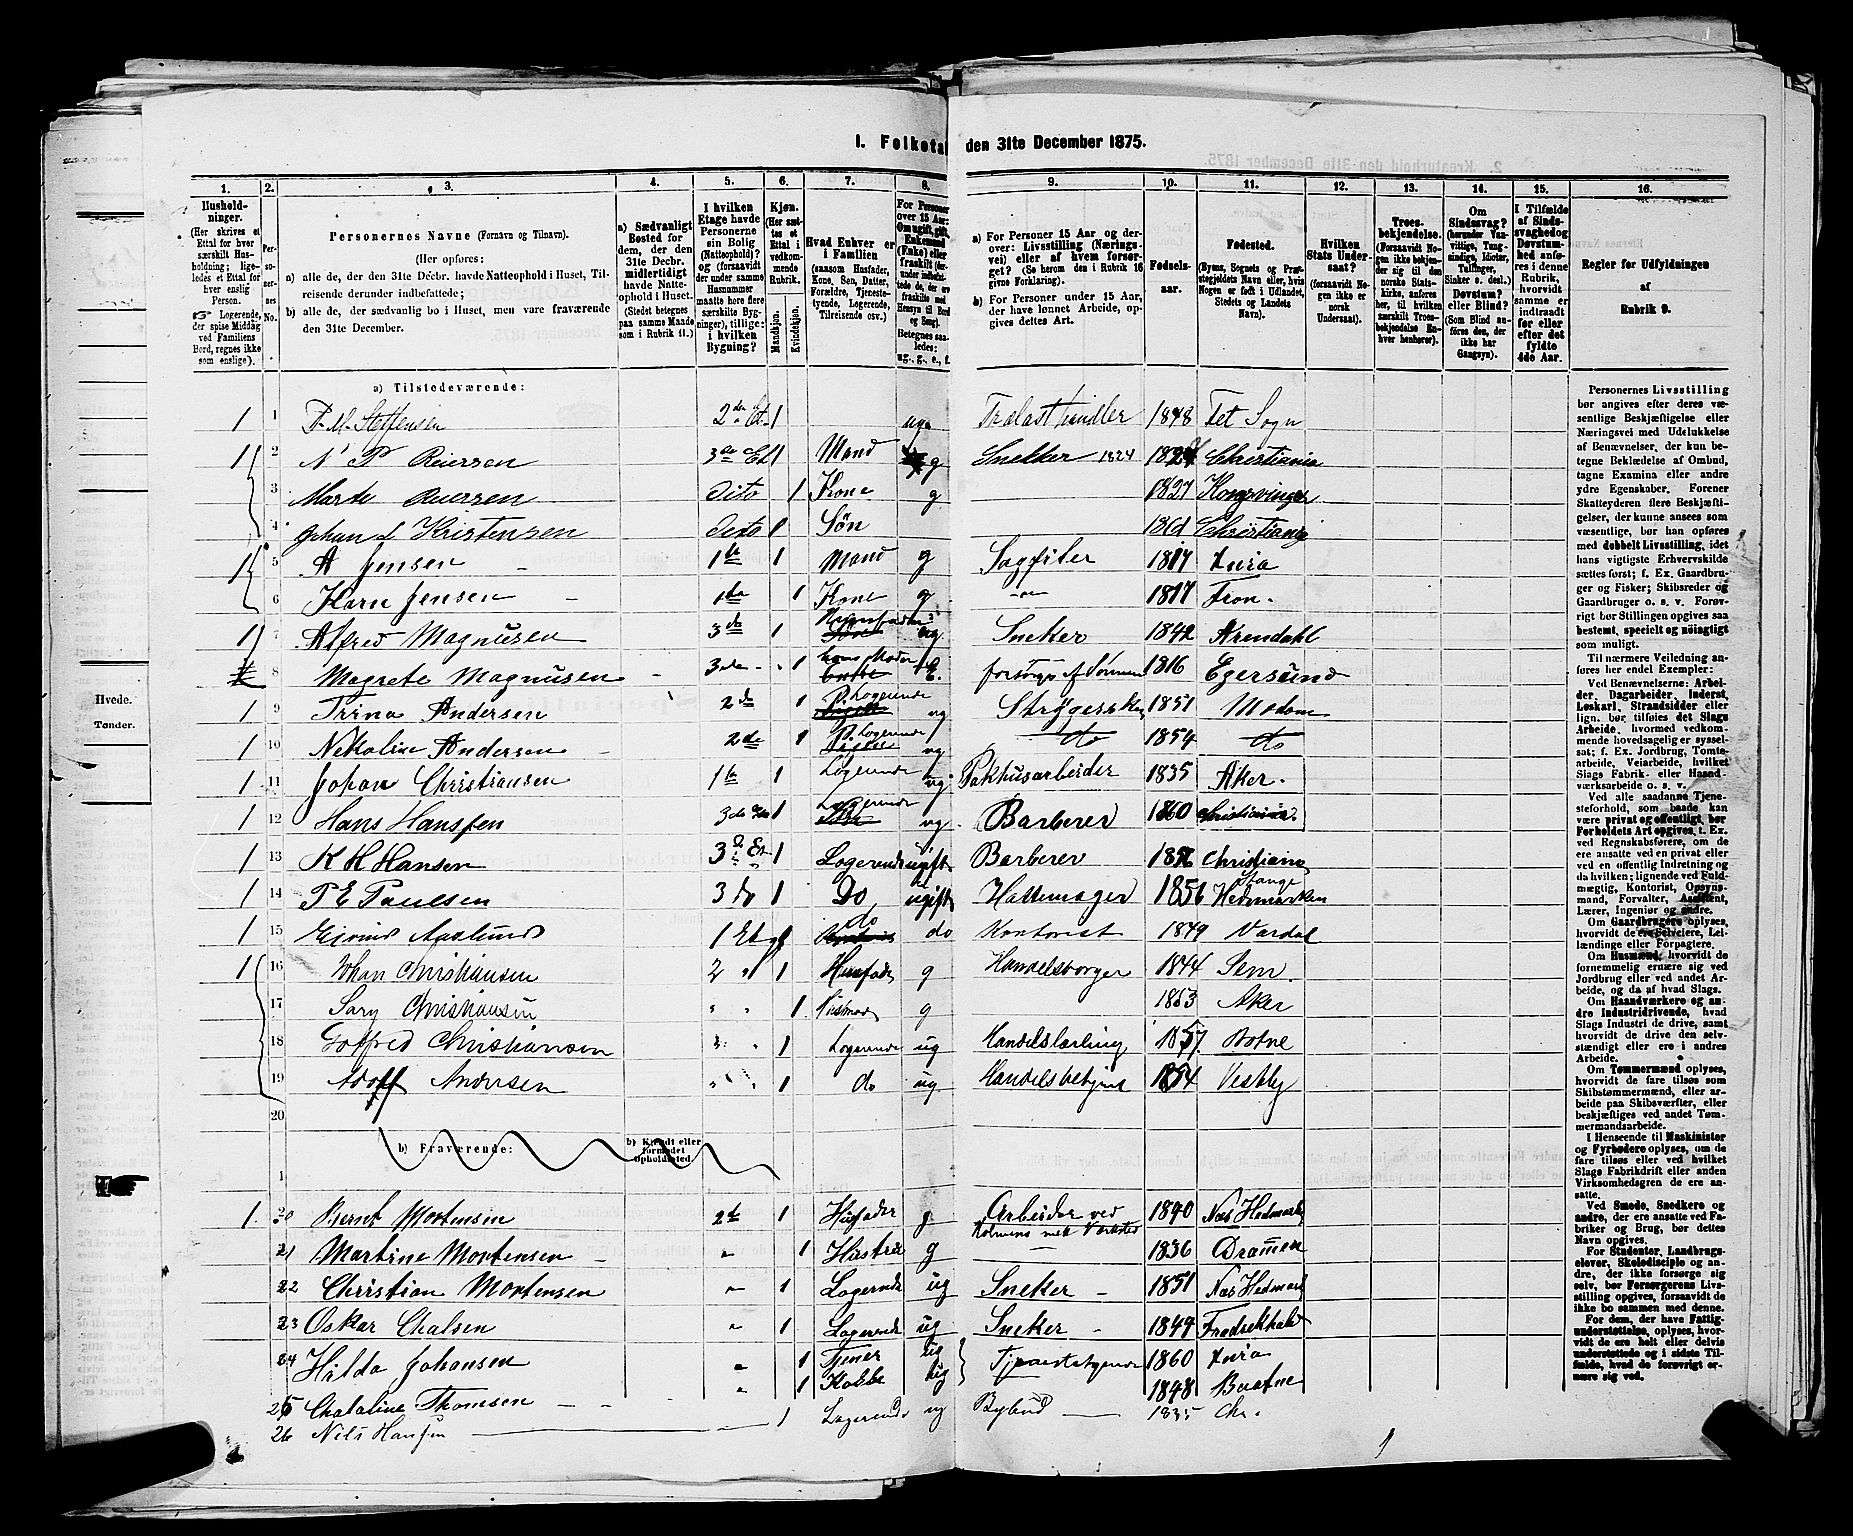 I. Folketal den 31te December 1875.
1. 2. 3. 4. 5. 6. 7. 8. 9. 10. 11. 12. 13. 14. 15. 16.
Husholdninger. (Her skrives et Ettal for hver særskilt Husholdning; ligeledes et Ettal for hver enslig Person. Logerende, der spise Middag ved Familiens Bord, regnes ikke som enslige).
Personernes No.
Personernes Navne (Fornavn og Tilnavn).
(Her opføres:
a) alle de, der den 31te Decbr. havde Natteophold i Huset, Tilreisende derunder indbefattede;
b) alle de, der sædvanlig bo i Huset, men vare fraværende den 31te December.
a) Sædvanligt Bosted for dem, der den 31te Decbr. midlertidigt havde Natteophold i Huset. (Stedet betegnes paa samme Maade som i Rubrik 11.)
I hvilken Etage havde Personerne sin Bolig (Natteophold)? og (forsaavidt der under samme Husnummer maatte høre flere særskilte Bygninger), tillige: i hvilken Bygning?
Kjøn. (Her sættes et Ettal i vedkommende Rubrik. Mandkjøn. Kvindekjøn.
Hvad Enhver er i Familien (saasom Husfader, Kone, Søn, Datter, Forældre, Tjenestetyende, Logerende, Tilreisende osv.)
For Personer over 15 Aar: Om ugift, gift, Enkemand (Enke) eller fraskilt
a) For Personer 15 Aar og derover: Livsstilling (Næringsvei) eller af hvem forsørget? (Se herom den i Rubrik 16 givne Forklaring).
b) For Personer under 15 Aar, der have lønnet Arbeide, opgives dettes Art.
Fødselsaar.
Fødested. (Byens, Sognets og Præstegjeldets Navn eller, hvis Nogen er født i Udlandet, Stedets og Landets Navn).
Hvilken Stats Undersaat? (forsaavidt Nogen ikke er norsk Undersaat).
Troesbekjendelse. (Forsaavidt Nogen ikke bekjender sig til den norske Statskirke, anføres her, til hvilken særskilt Troesbekjendelse Enhver henhører).
Om Sindssvag? (herunder Vanvittige, Tungsindige, Idioter, Tullinger, Sinker o. desl.) Døvstum? eller Blind? (Som Blind anføres den, der ikke har Gangsyn).
I Tilfælde af Sindssvaghed og Døvstumhed anføres i denne Rubrik, hvorvidt samme er indtraadt før eller efter det fyldte 4de Aar.
Regler for Udfyldningen af Rubrik 9.
Hvede.
Tønder.
a) Tilstedeværende:
1 1 P. M. Steffensen 2den Et. 1 ug. Trælasthandler 1848 Fet Sogn
1 2 N P Reiersen 3de Et 1 Mand g Snekker 1824 Christiania
3 Marte Reiersen dito 1 Kone g 1827 Kongsvinger
4 Johan Kristensen dito 1 Søn 1861 Christiania
1 5 A Jensen 1ste 1 Mand g Sagfiler 1817
6 Karn Jensen 1ste 1 Kone g 1817 Fron.
1 7 Alfred Magnusen 3de 1 ug Sneker 1842 Arendahl
8 Magrete Magnusen 3de 1 hans Moder E. forsørges af Sønnen 1816 Egersund
1 9 Trina Andersen 2de 1 Logerende ug 1851 Modum
1 10 Nekoline Andersen 2de 1 Logerende ug do 1854 do
1 11 Johan Christiansen 1ste 1 Logerende ug. Pakhusarbeider 1835 Aker.
1 12 Hans Hansen 3de 1 Logerende ug. Barberer 1860 Christiania.
1 13 K H Hansen 3 Et 1 Logerende ugift Barberer Christiania
1 14 P E Paulsen 3 do 1 Do ugift Hattemager 1856 Stange Hedemarken
1 15 Eivind Aaslund 1 Et 1 do do Kontorist 1849 Vardal
1 16 Johan Christiansen 2 " 1 Husfader g Handelsborger 1844 Sem.
17 Sary Christiansen " " 1 Husmoder g 1853 Aker
18 Gotfred Christiansen " " 1 Logerende ug Handelslærling 1857 Botne
19 Adolf Andersen " " 1 do ug Handelsbetjent 1854 Vestby
20
b) Fraværende: b) Kjendt eller formodet Opholdssted.
1
1. 20 Bernt Mortensen 2de 1 Husfader g. Arbeider ved mek Værksted 1840 Næs Hedmark
21 Martine Mortensen " 1 Hustru g 1836 Dramen
22 Christian Mortensen " 1 Logerende ug Sneker 1851 Næs Hedmark
23 Oskar Chalsen " 1 Logerende ug Sneker 1849 Fredrekhald
24 Hilda Johansen " 1 Tjener ug 1860
25 Chataline Thomsen " 1 Kokke ug 1848
26 Nils Hansen 1 Logerende ug Bybud 1835 Chr.
Personernes Livsstilling bør angives efter deres væsentlige Beskjæftigelse eller Næringsvei med Udelukkelse af Benævnelser, der kun betegne Beklædelse af Ombud, tagne Examina eller andre ydre Egenskaber. Forener Skatteyderen flere Beskjæftigelser, der kunne ansees som væsentlige, bør han opføres med dobbelt Livsstilling, idet hans vigtigste Erhvervskilde sættes først; f. Ex. Gaardbruger og Fisker; Skibsreder og Gaardbruger o. s. v. Forøvrigt bør Stillingen opgives saa bestemt, specielt og nøiagtigt som muligt.
Til nærmere Veiledning anføres her endel Exempler:
Ved Benævnelserne: Arbeider, Dagarbeider, Inderst, Løskarl, Strandsidder eller lign. bør tilføies det Slags Arbeide, hvormed vedkommende hovedsagelig er sysselsat; f. Ex. Jordbrug, Tomtearbeide, Veiarbeide, hvilket Slags Fabrik- eller Haandværksarbeide o. s. v.
Ved alle saadanne Tjenesteforhold, som baade kan være privat og offentligt, bør Forholdets Art opgives, t. Ex. ved Regnskabsførere, om de ere ansatte ved en privat eller en offentlig Indretning og da hvilken; lignende ved Fuldmægtig, Kontorist, Opsynsmand, Forvalter, Assistent, Lærer, Ingeniør og andre.
Om Gaardbrugere oplyses, hvorvidt de ere Selveiere, Leilændinge eller Forpagtere.
Om Husmænd, hvorvidt de fornemmelig ernære sig ved Jordbrug eller ved andet Arbeide, og da af hvad Slags.
Om Haandværkere og andre Industridrivende, hvad Slags Industri de drive, samt hvorvidt de drive den selvstændigt eller ere i andres Arbeide.
Om Tømmermænd oplyses, hvorvidt de fare tilsøs som Skibstømmermænd, eller arbeide paa Skibsværfter, eller beskjæftiges ved andet Tømmermandsarbeide.
I Henseende til Maskinister og Fyrbødere oplyses, om de fare tilsøs eller ved hvilket Slags Fabrikdrift eller anden Virksomhedsgren de ere ansatte.
Ved Smede, Snedkere og andre, der ere ansatte ved Fabriker og Brug, bør dettes Navn opgives.
For Studenter, Landbrugselever, Skoledisciple og andre, der ikke forsørge sig selv, bør Forsørgerens Livsstilling opgives, forsaavidt de ikke bo sammen med denne.
For dem, der have Fattigunderstøttelse, oplyses, hvorvidt de ere helt eller delvis understøttede og i sidste Tilfælde, hvad de forøvrigt ernære sig ved.